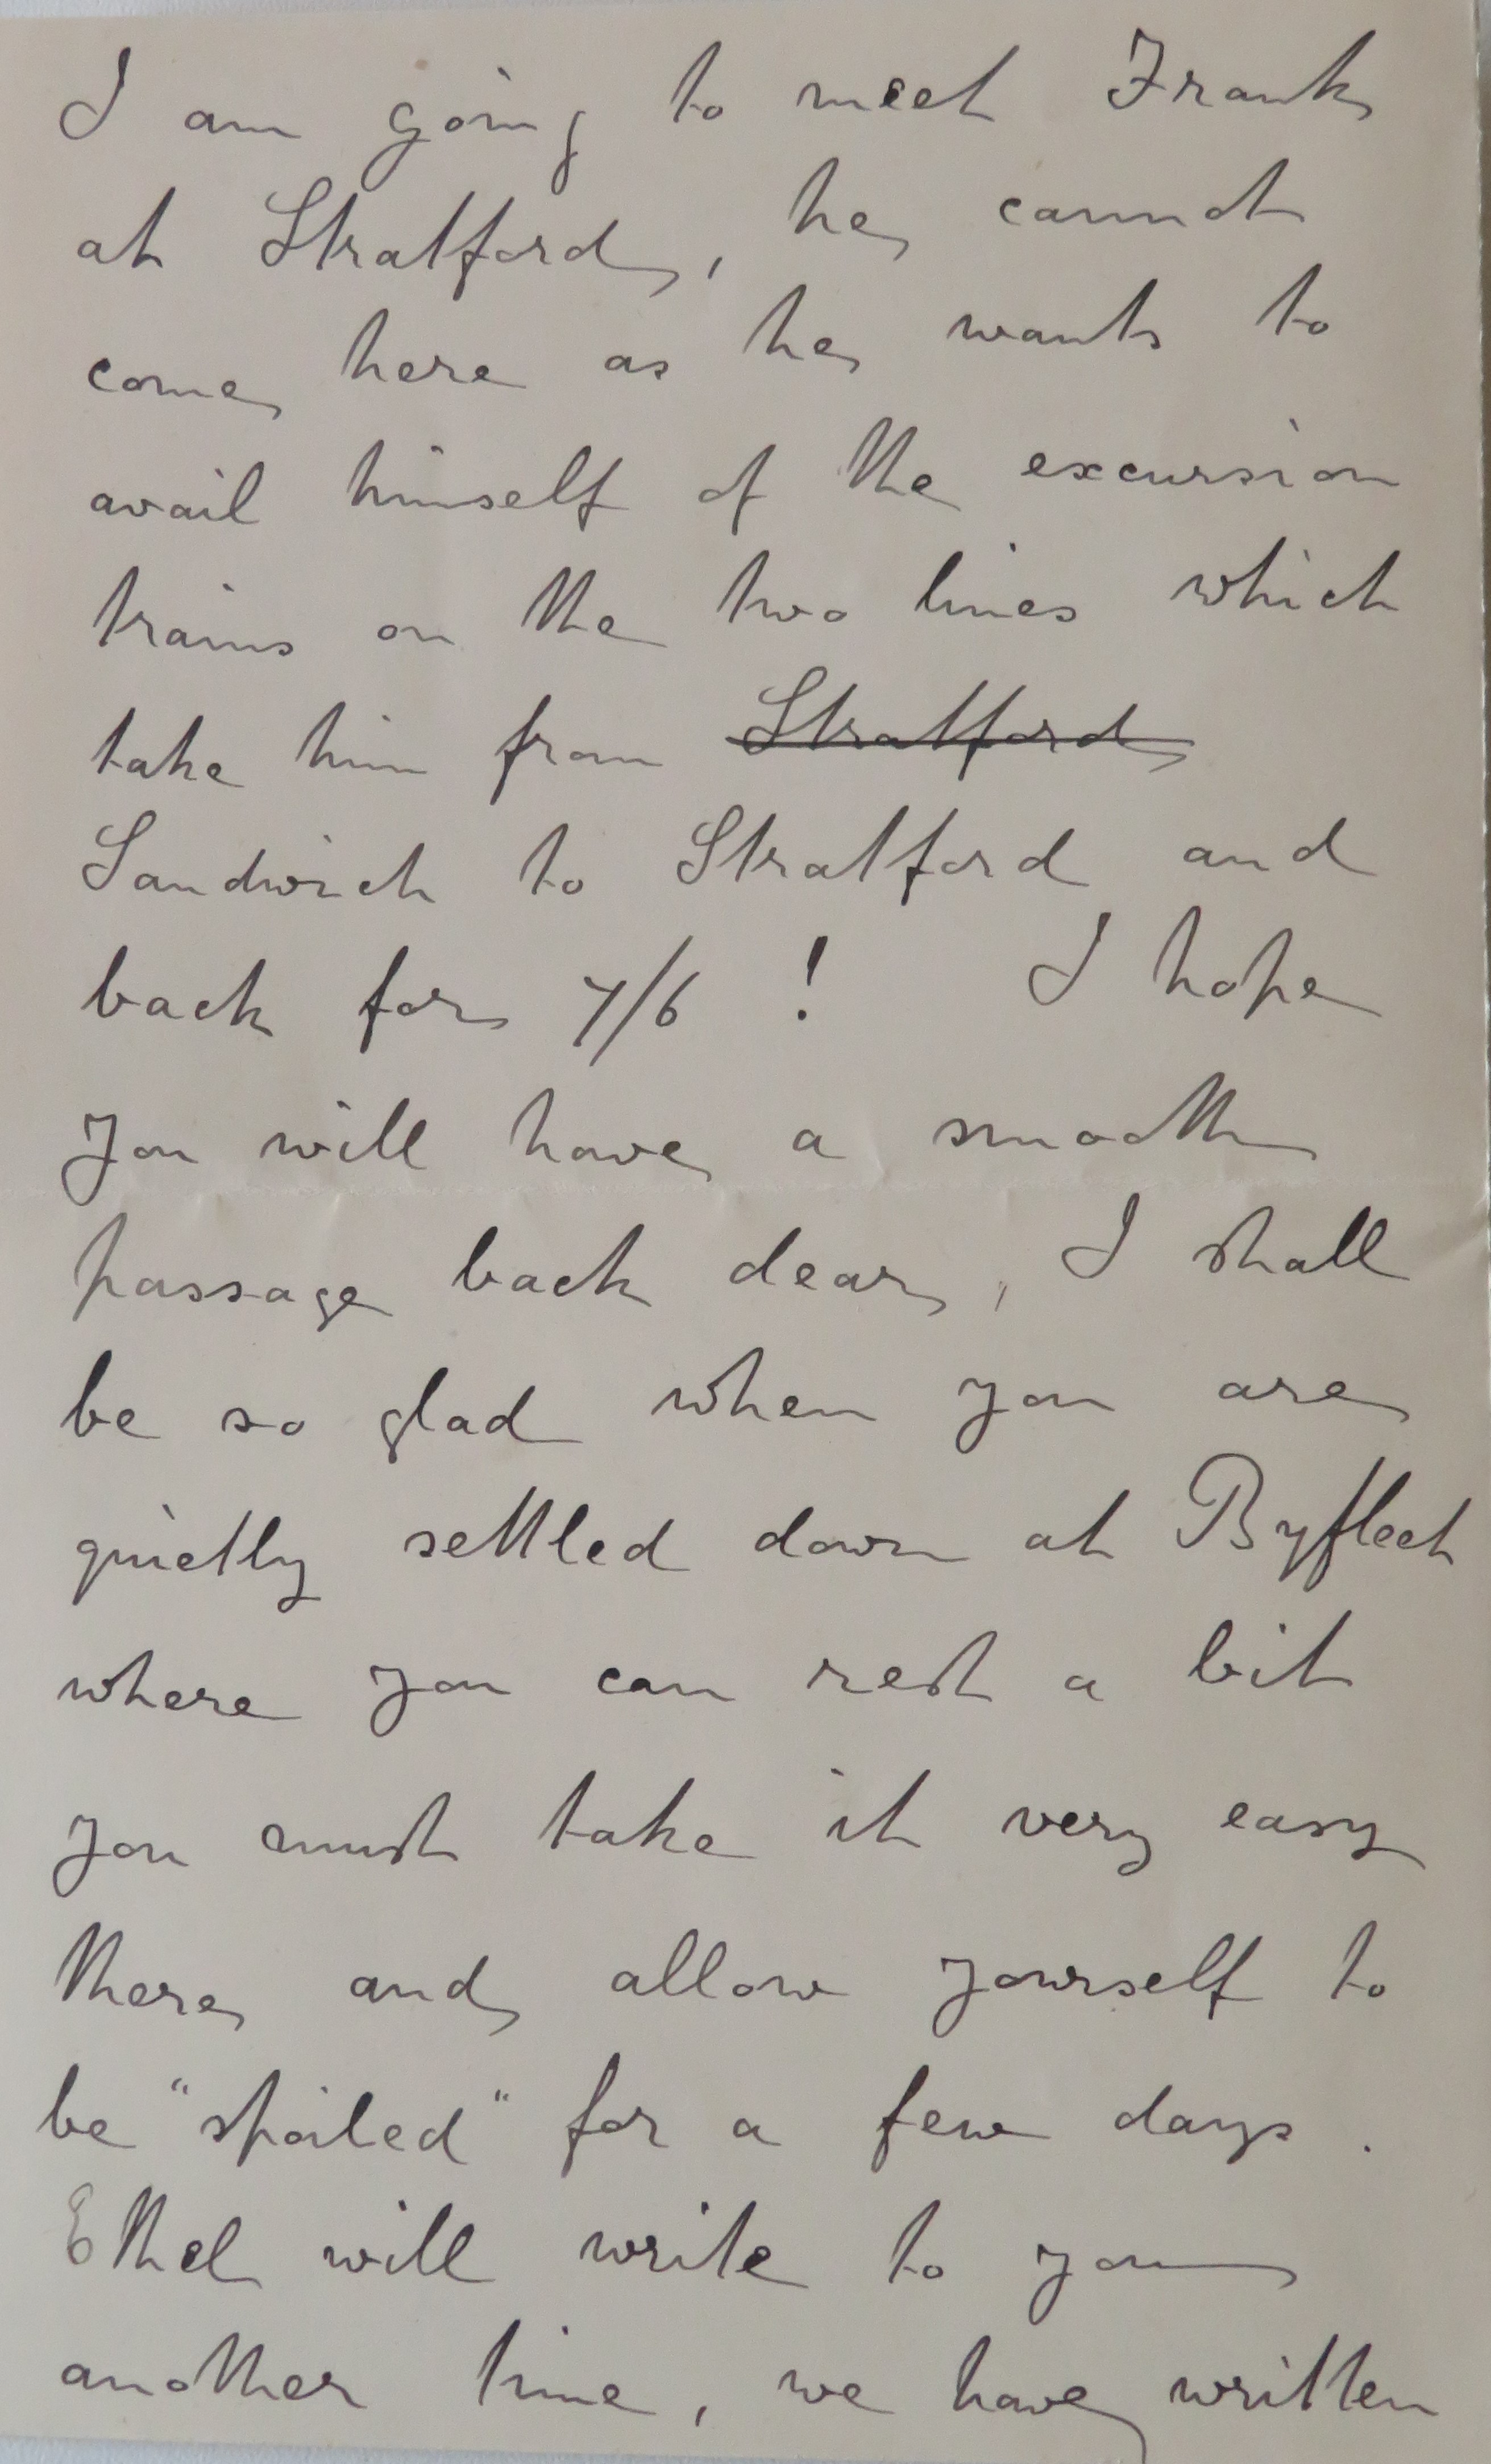 I am going to meet Frank
at Stratford, he cannot
come here as he wants to
avail himself of the excursion
trains on the two lines which
take him from ~~Stratford~~
Sandwich to Stratford and
back for 7/6 ! I hope
you will have a smooth
passage back dear, I shall
be so glad when you are
quietly settled down at Byfleet
where you can rest a bit
you must take it very easy
there and allow yourself to
be "spoiled" for a few days.
Ethel will write to you
another time, we have written